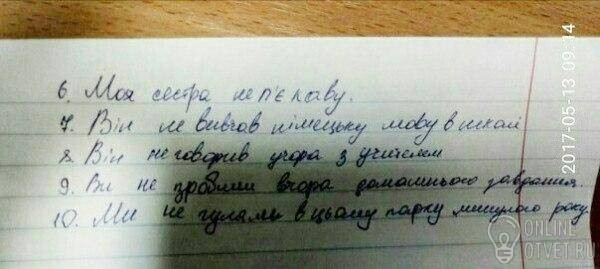 6. Моя сестра не п'є каву.
7. Він не вивчав німецьку мову в школі
8. Він не говорив учора з учителем
9. Ви не зробили вчора домашнього завдання.
10. Ми не гуляли в цьому парку минулого року.
2017-05-13 09:14
ONLINE
OTVET.RU